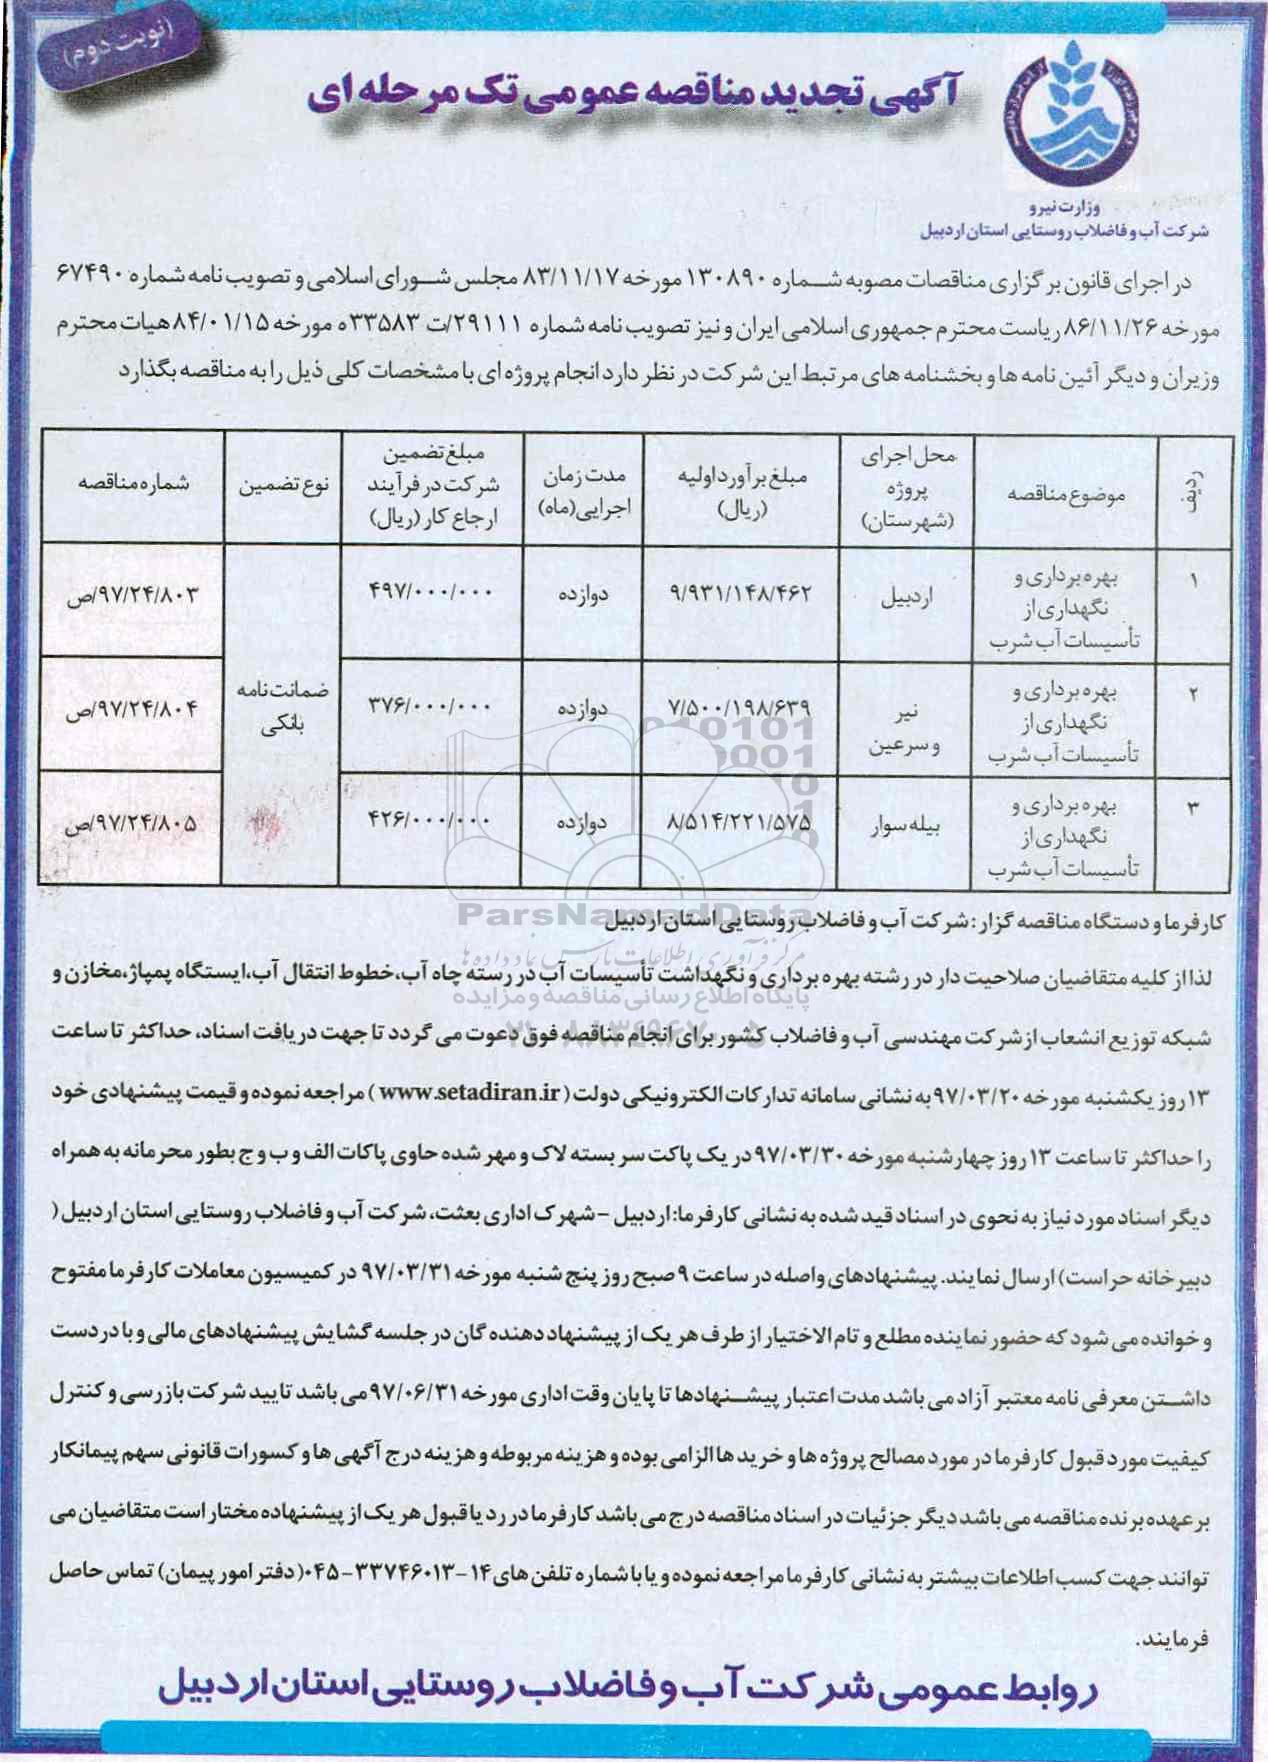 (نوبت دوم)
آگهی تجدید مناقصه عمومی تک مرحله ای
وزارت نیرو
شرکت آب و فاضلاب روستایی استان اردبیل
در اجرای قانون برگزاری مناقصات مصوبه شماره ۱۳۰۸۹۰ مورخه ۸۳/۱۱/۱۷ مجلس شورای اسلامی و تصویب نامه شماره ۶۷۴۹۰
مورخه ۸۶/۱۱/۲۶ ریاست محترم جمهوری اسلامی ایران و نیز تصویب نامه شماره ۲۹۱۱۱/ت ۳۳۵۸۳ه مورخه ۸۴/۰۱/۱۵ هیات محترم
وزیران و دیگر آئین نامه ها و بخشنامه های مرتبط این شرکت در نظر دارد انجام پروژه ای با مشخصات کلی ذیل را به مناقصه بگذارد
ردیف
موضوع مناقصه
محل اجرای
پروژه
(شهرستان)
مبلغ برآورد اولیه
(ریال)
مدت زمان
اجرایی(ماه)
مبلغ تضمین
شرکت در فرآیند
ارجاع کار (ریال)
نوع تضمین
شماره مناقصه
۱
بهره برداری و
نگهداری از
تأسیسات آب شرب
اردبیل
۹/۹۳۱/۱۴۸/۴۶۲
دوازده
۴۹۷/۰۰۰/۰۰۰
ضمانت نامه
بانکی
۹۷/۲۴/۸۰۳/ص
۲
بهره برداری و
نگهداری از
تأسیسات آب شرب
نیر
و سرعین
۷/۵۰۰/۱۹۸/۶۳۹
دوازده
۳۷۶/۰۰۰/۰۰۰
۹۷/۲۴/۸۰۴/ص
۳
بهره برداری و
نگهداری از
تأسیسات آب شرب
بیله سوار
۸/۵۱۴/۲۲۱/۵۷۵
دوازده
۴۲۶/۰۰۰/۰۰۰
۹۷/۲۴/۸۰۵/ص
کارفرما و دستگاه مناقصه گزار: شرکت آب و فاضلاب روستایی استان اردبیل
ParsNamadData
مرکز فرآوری اطلاعات پارس نماد داده ها
پایگاه اطلاع رسانی مناقصه و مزایده
لذا از کلیه متقاضیان صلاحیت دار در رشته بهره برداری و نگهداشت تأسیسات آب در رسته چاه آب،خطوط انتقال آب،ایستگاه پمپاژ،مخازن و
شبکه توزیع انشعاب از شرکت مهندسی آب و فاضلاب کشور برای انجام مناقصه فوق دعوت می گردد تا جهت دریافت اسناد، حداکثر تا ساعت
۱۳ روز یکشنبه مورخه ۹۷/۰۳/۲۰ به نشانی سامانه تدارکات الکترونیکی دولت (www.setadiran.ir) مراجعه نموده و قیمت پیشنهادی خود
را حداکثر تا ساعت ۱۳ روز چهارشنبه مورخه ۹۷/۰۳/۳۰ در یک پاکت سر بسته لاک و مهر شده حاوی پاکات الف و ب و ج بطور محرمانه به همراه
دیگر اسناد مورد نیاز به نحوی در اسناد قید شده به نشانی کارفرما: اردبیل - شهرک اداری بعثت، شرکت آب و فاضلاب روستایی استان اردبیل (
دبیرخانه حراست) ارسال نمایند. پیشنهادهای واصله در ساعت ۹ صبح روز پنج شنبه مورخه ۹۷/۰۳/۳۱ در کمیسیون معاملات کارفرما مفتوح
و خوانده می شود که حضور نماینده مطلع و تام الاختیار از طرف هر یک از پیشنهاد دهنده گان در جلسه گشایش پیشنهادهای مالی و با در دست
داشتن معرفی نامه معتبر آزاد می باشد مدت اعتبار پیشنهادها تا پایان وقت اداری مورخه ۹۷/۰۶/۳۱ می باشد تایید شرکت بازرسی و کنترل
کیفیت مورد قبول کارفرما در مورد مصالح پروژه ها و خرید ها الزامی بوده و هزینه مربوطه و هزینه درج آگهی ها و کسورات قانونی سهم پیمانکار
بر عهده برنده مناقصه می باشد دیگر جزئیات در اسناد مناقصه درج می باشد کارفرما در رد یا قبول هر یک از پیشنهاده مختار است متقاضیان می
توانند جهت کسب اطلاعات بیشتر به نشانی کارفرما مراجعه نموده و یا با شماره تلفن های ۱۴-۳۳۷۴۶۰۱۳-۰۴۵ (دفتر امور پیمان) تماس حاصل
فرمایند.
روابط عمومی شرکت آب و فاضلاب روستایی استان اردبیل